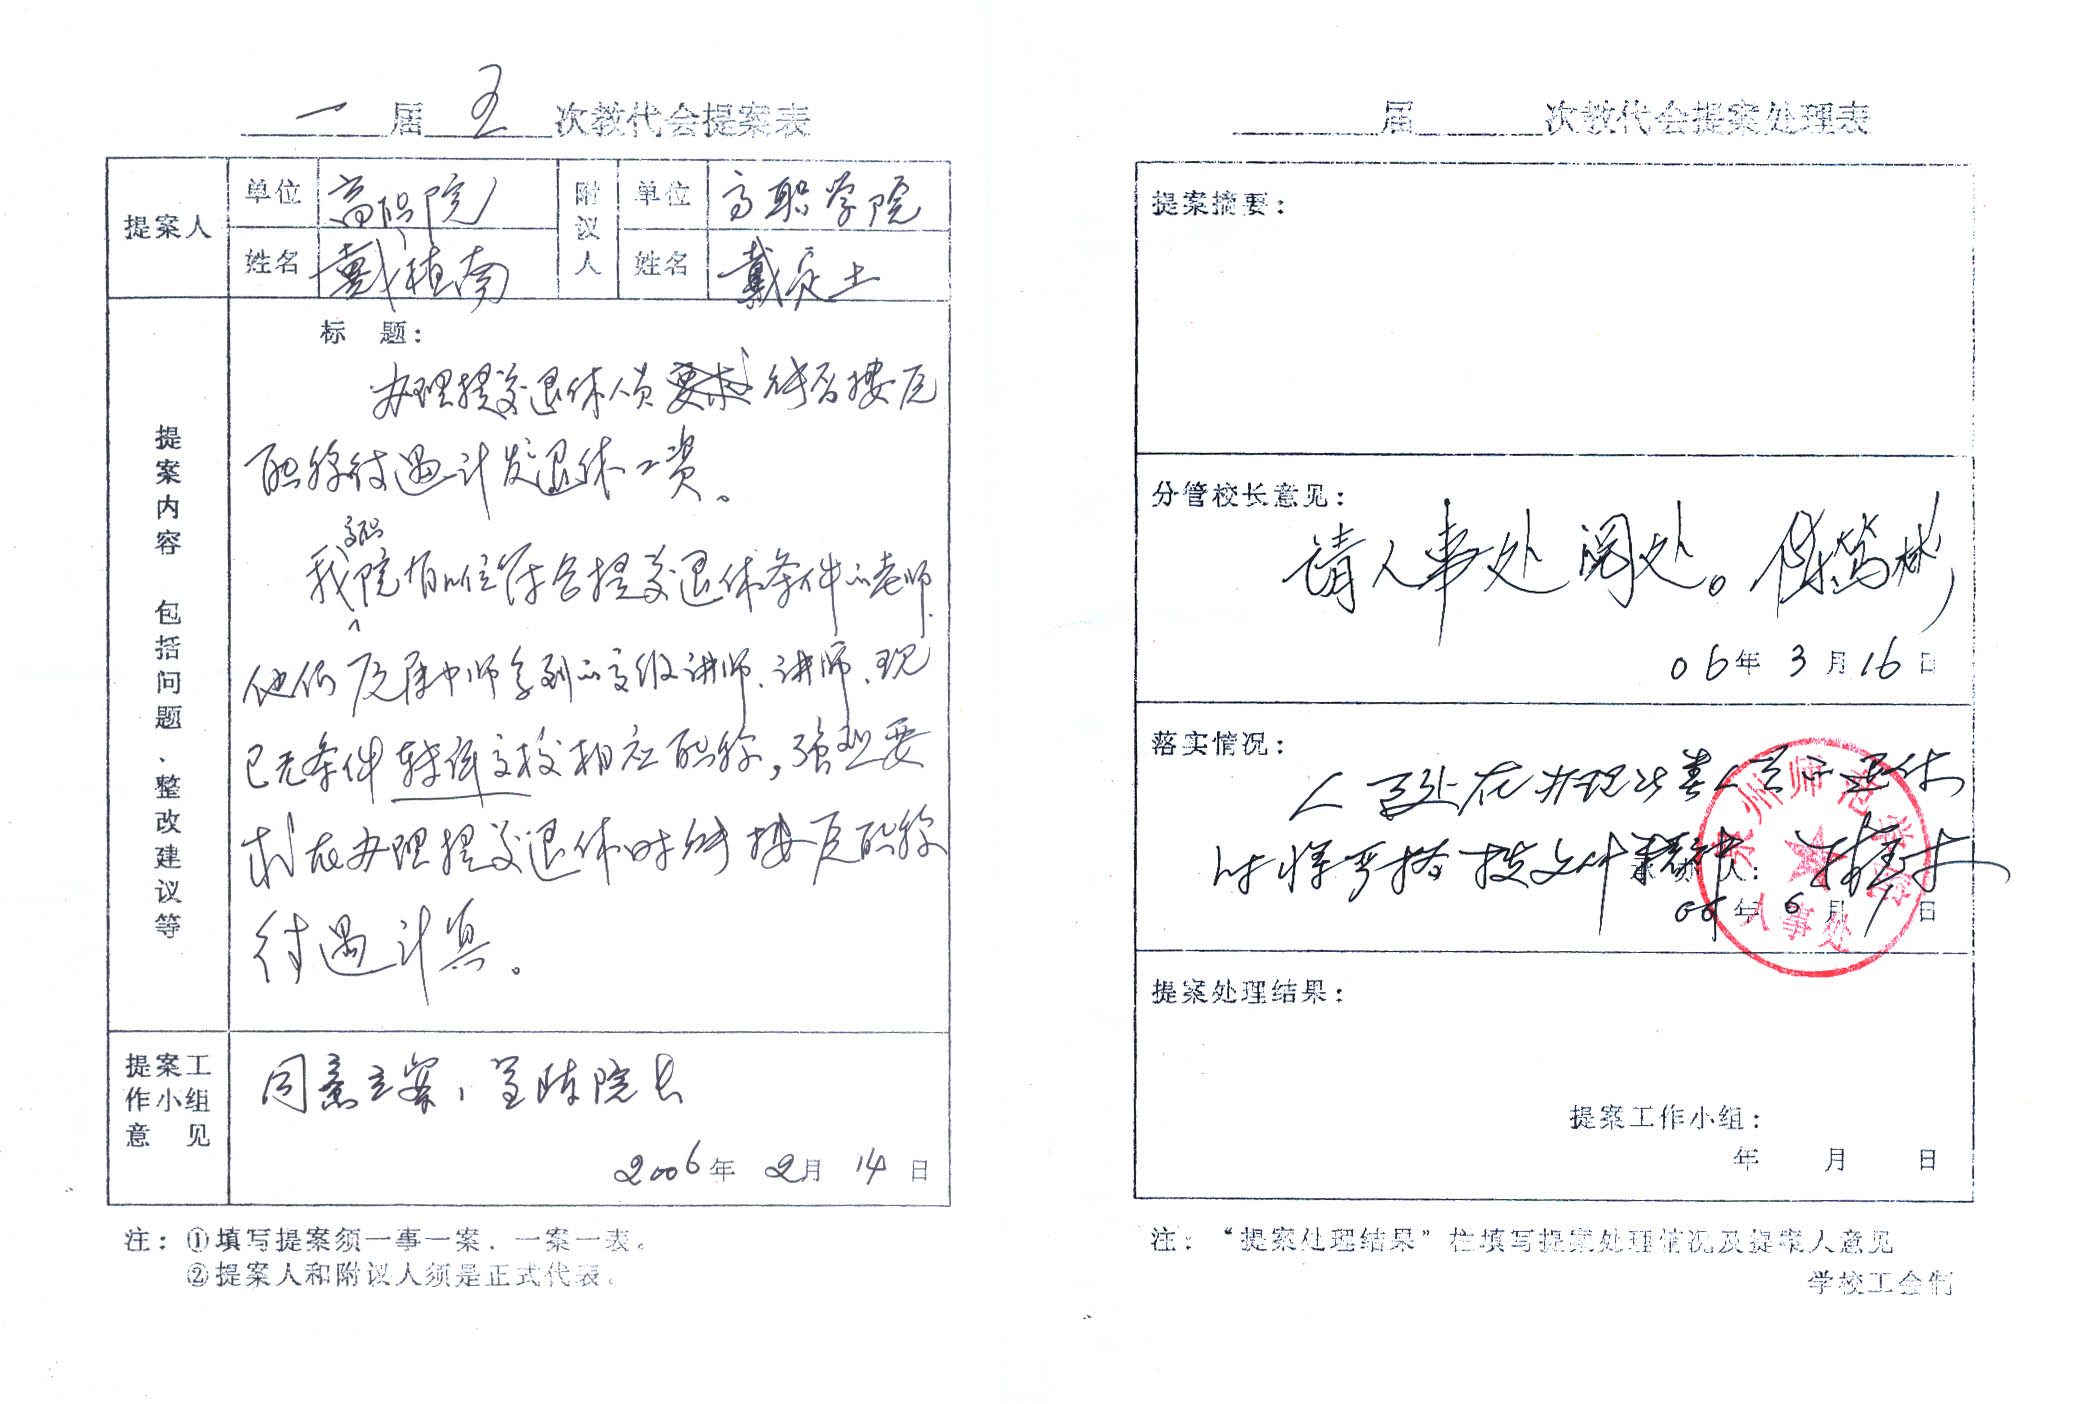 一届五次教代会提案表
提案人
单位
高职院
附议人
单位
高职学院
姓名
戴植南
姓名
戴
土
标 题：
办理提前退休人员能否按原
职称待遇计发退休工资。
提案内容 包括问题、整改建议等
高职
我院有几位符合提前退休条件的老师
他们原属中师系列的高级讲师、讲师、现
已无条件转评高校相应职称，强烈要
求在办理提前退休时能按原职称
待遇计算。
提案工作小组意见
同意立案，呈陈院长
2006年 2月 14日
注：①填写提案须一事一案．一案一表。
②提案人和附议人须是正式代表。
届 次教代会提案处理表
提案摘要：
分管校长意见：
请人事处阅处。陈笃彬
06年 3月 16日
落实情况：
人事处在办理此类人员的退休
时将严格按文件
承办人：
年 6月 日
泉州师范学院
人事处
提案处理结果：
提案工作小组：
年 月 日
注：“提案处理结果”栏填写提案处理情况及提案人意见
学校工会制